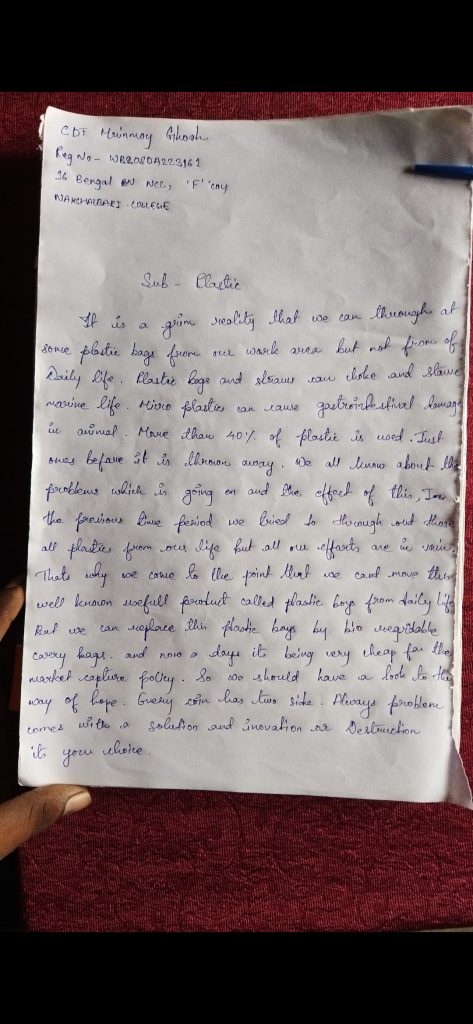 CDT Mrinmoy Ghosh
Reg No - WB20SDA223161
16 Bengal BN NCC, 'F' coy
NAKSHALBARI COLLEGE
Sub - Plastic
It is a grim reality that we can through at
some plastic bags from our work area but not from of
Daily life. Plastic bags and straws can choke and starve
marine life. Micro plastics can cause gastrointestinal damage
in animal. More than 40% of plastic is used. Just
ones before it is thrown away. We all know about the
problems which is going on and the effect of this, In
the previous time period we tried to through out those
all plastics from our life but all our efforts are in vain.
Thats why we come to the point that we cant move this
well known usefull product called plastic bags from daily life
But we can replace this plastic bags by bio
carry bags. and now a days its being very cheap for the
market capture policy. So we should have a look to the
way of hope. Every coin has two side. Always problem
comes with a solution and inovation or Destruction
its your choice.